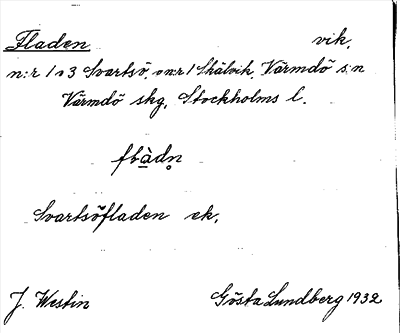 Fladen vik.
n:r 1 o 3 Svartsö, o n:r 1 Skälvik, Värmdö s:n
Värmdö skg, Stockholms l.
Svartsöfladen ek.
J. Westin Gösta Lundberg 1932